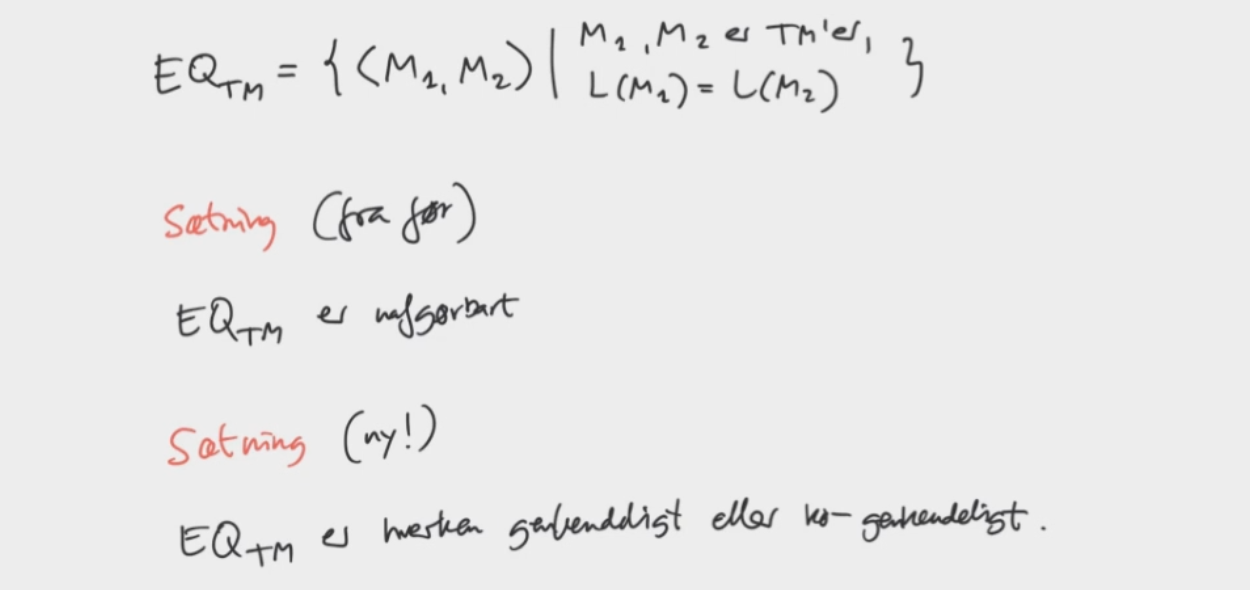 EQ_TM = { (M₁, M₂) | M₁, M₂ er TM'er, L(M₁) = L(M₂) }
Sætning (fra før)
EQ_TM er uafgørbart
Sætning (ny!)
EQ_TM er hverken genkendeligt eller ko-genkendeligt.